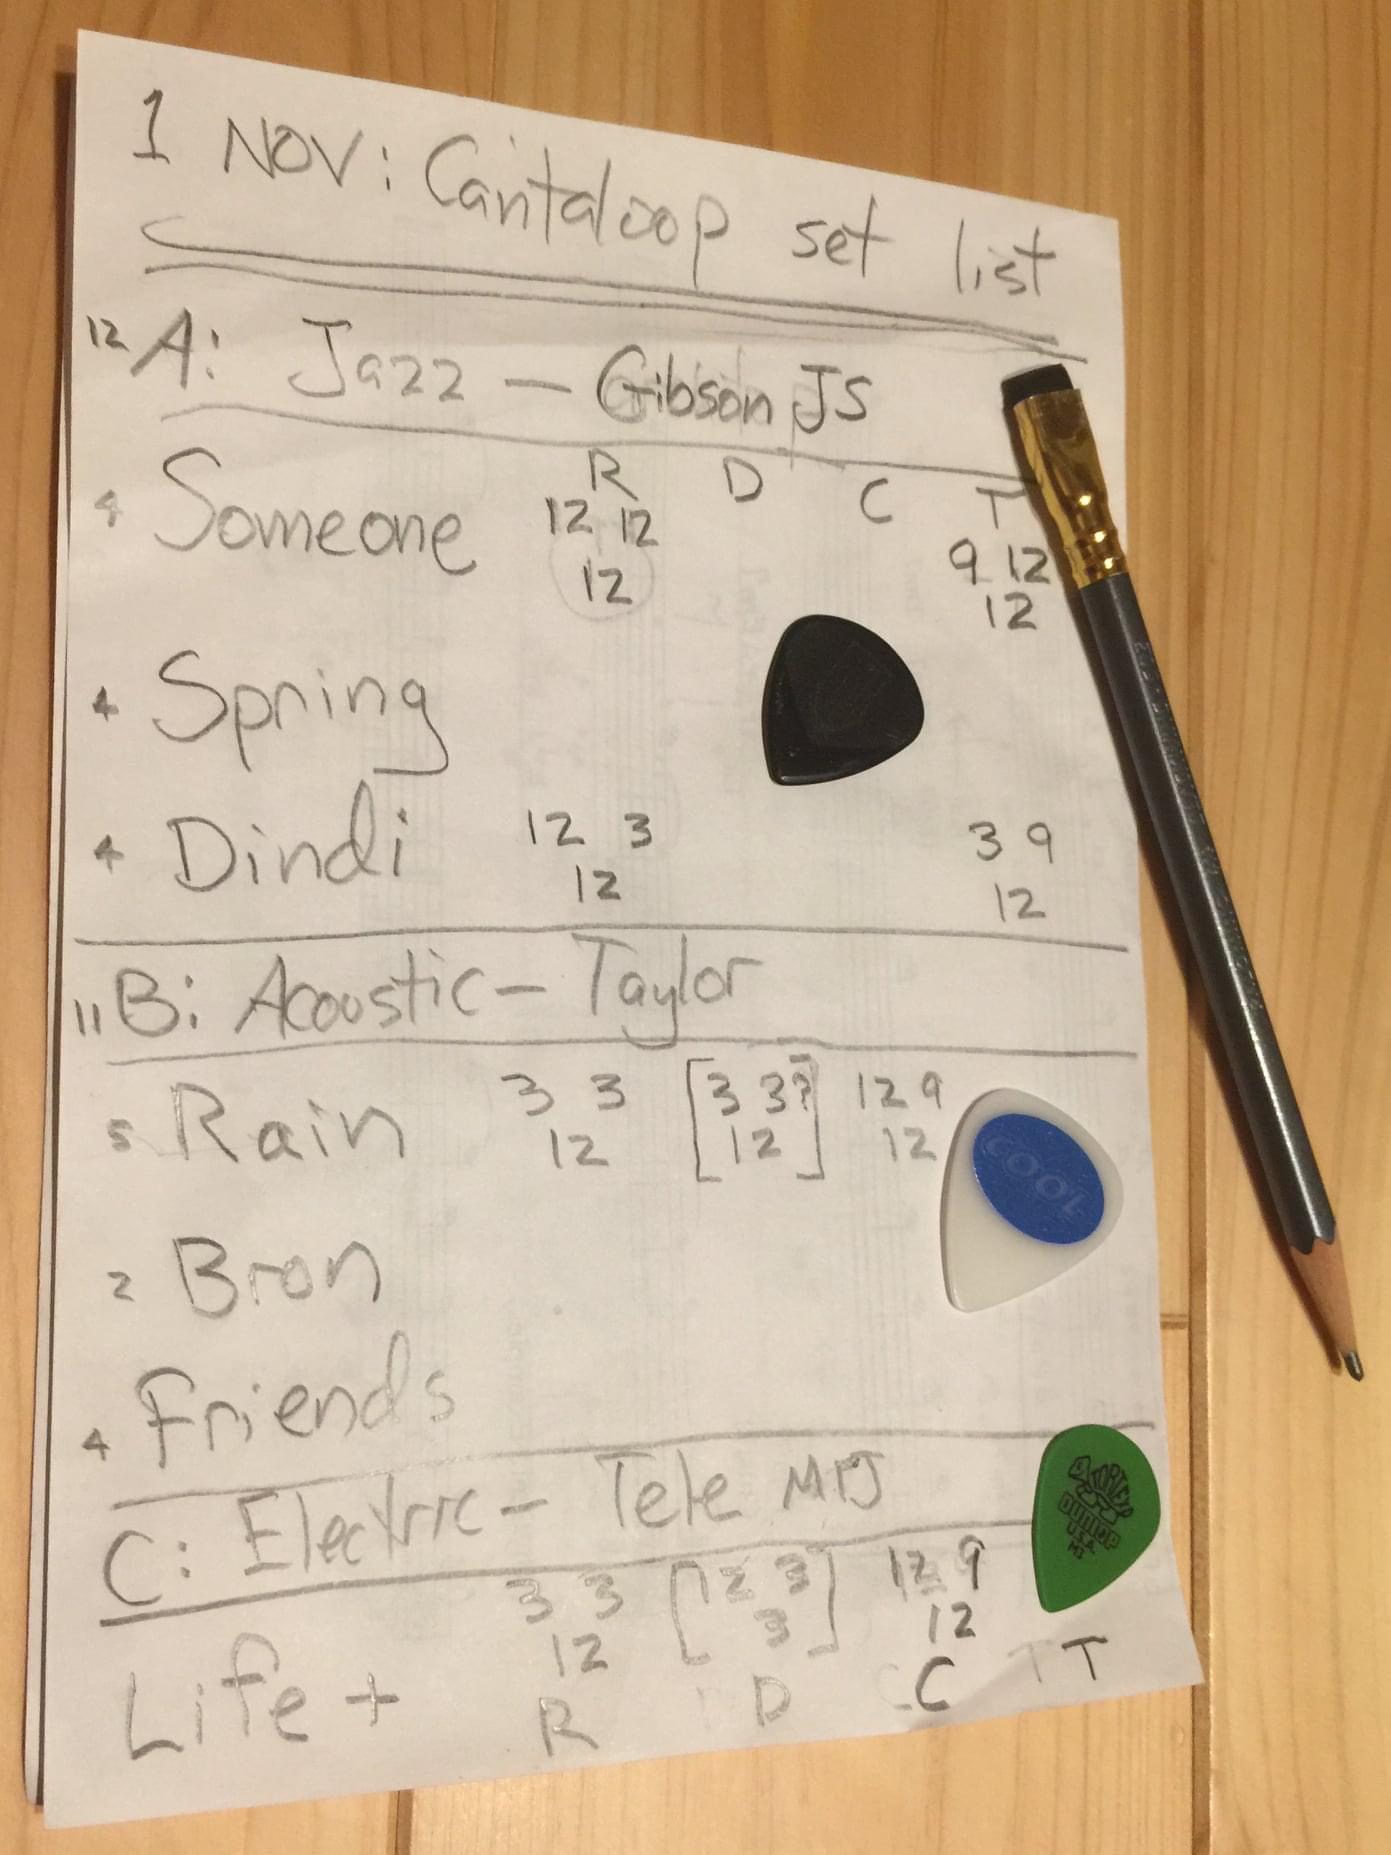 1 NOV: Cantaloop set list
12 A: Jazz — Gibson JS
R D C T
4 Someone 12 12 9 12
12 12
4 Spring
4 Dindi 12 3 3 9
12 12
11 B: Acoustic — Taylor
5 Rain 3 3 [3 3?] 12 9
12 12 12
COOL
2 Bron
4 Friends
C: Electric — Tele MIJ
TORTEX
DUNLOP
U.S.A.
3 3 [12 3] 12 9
12 3 12
Life + R D C T